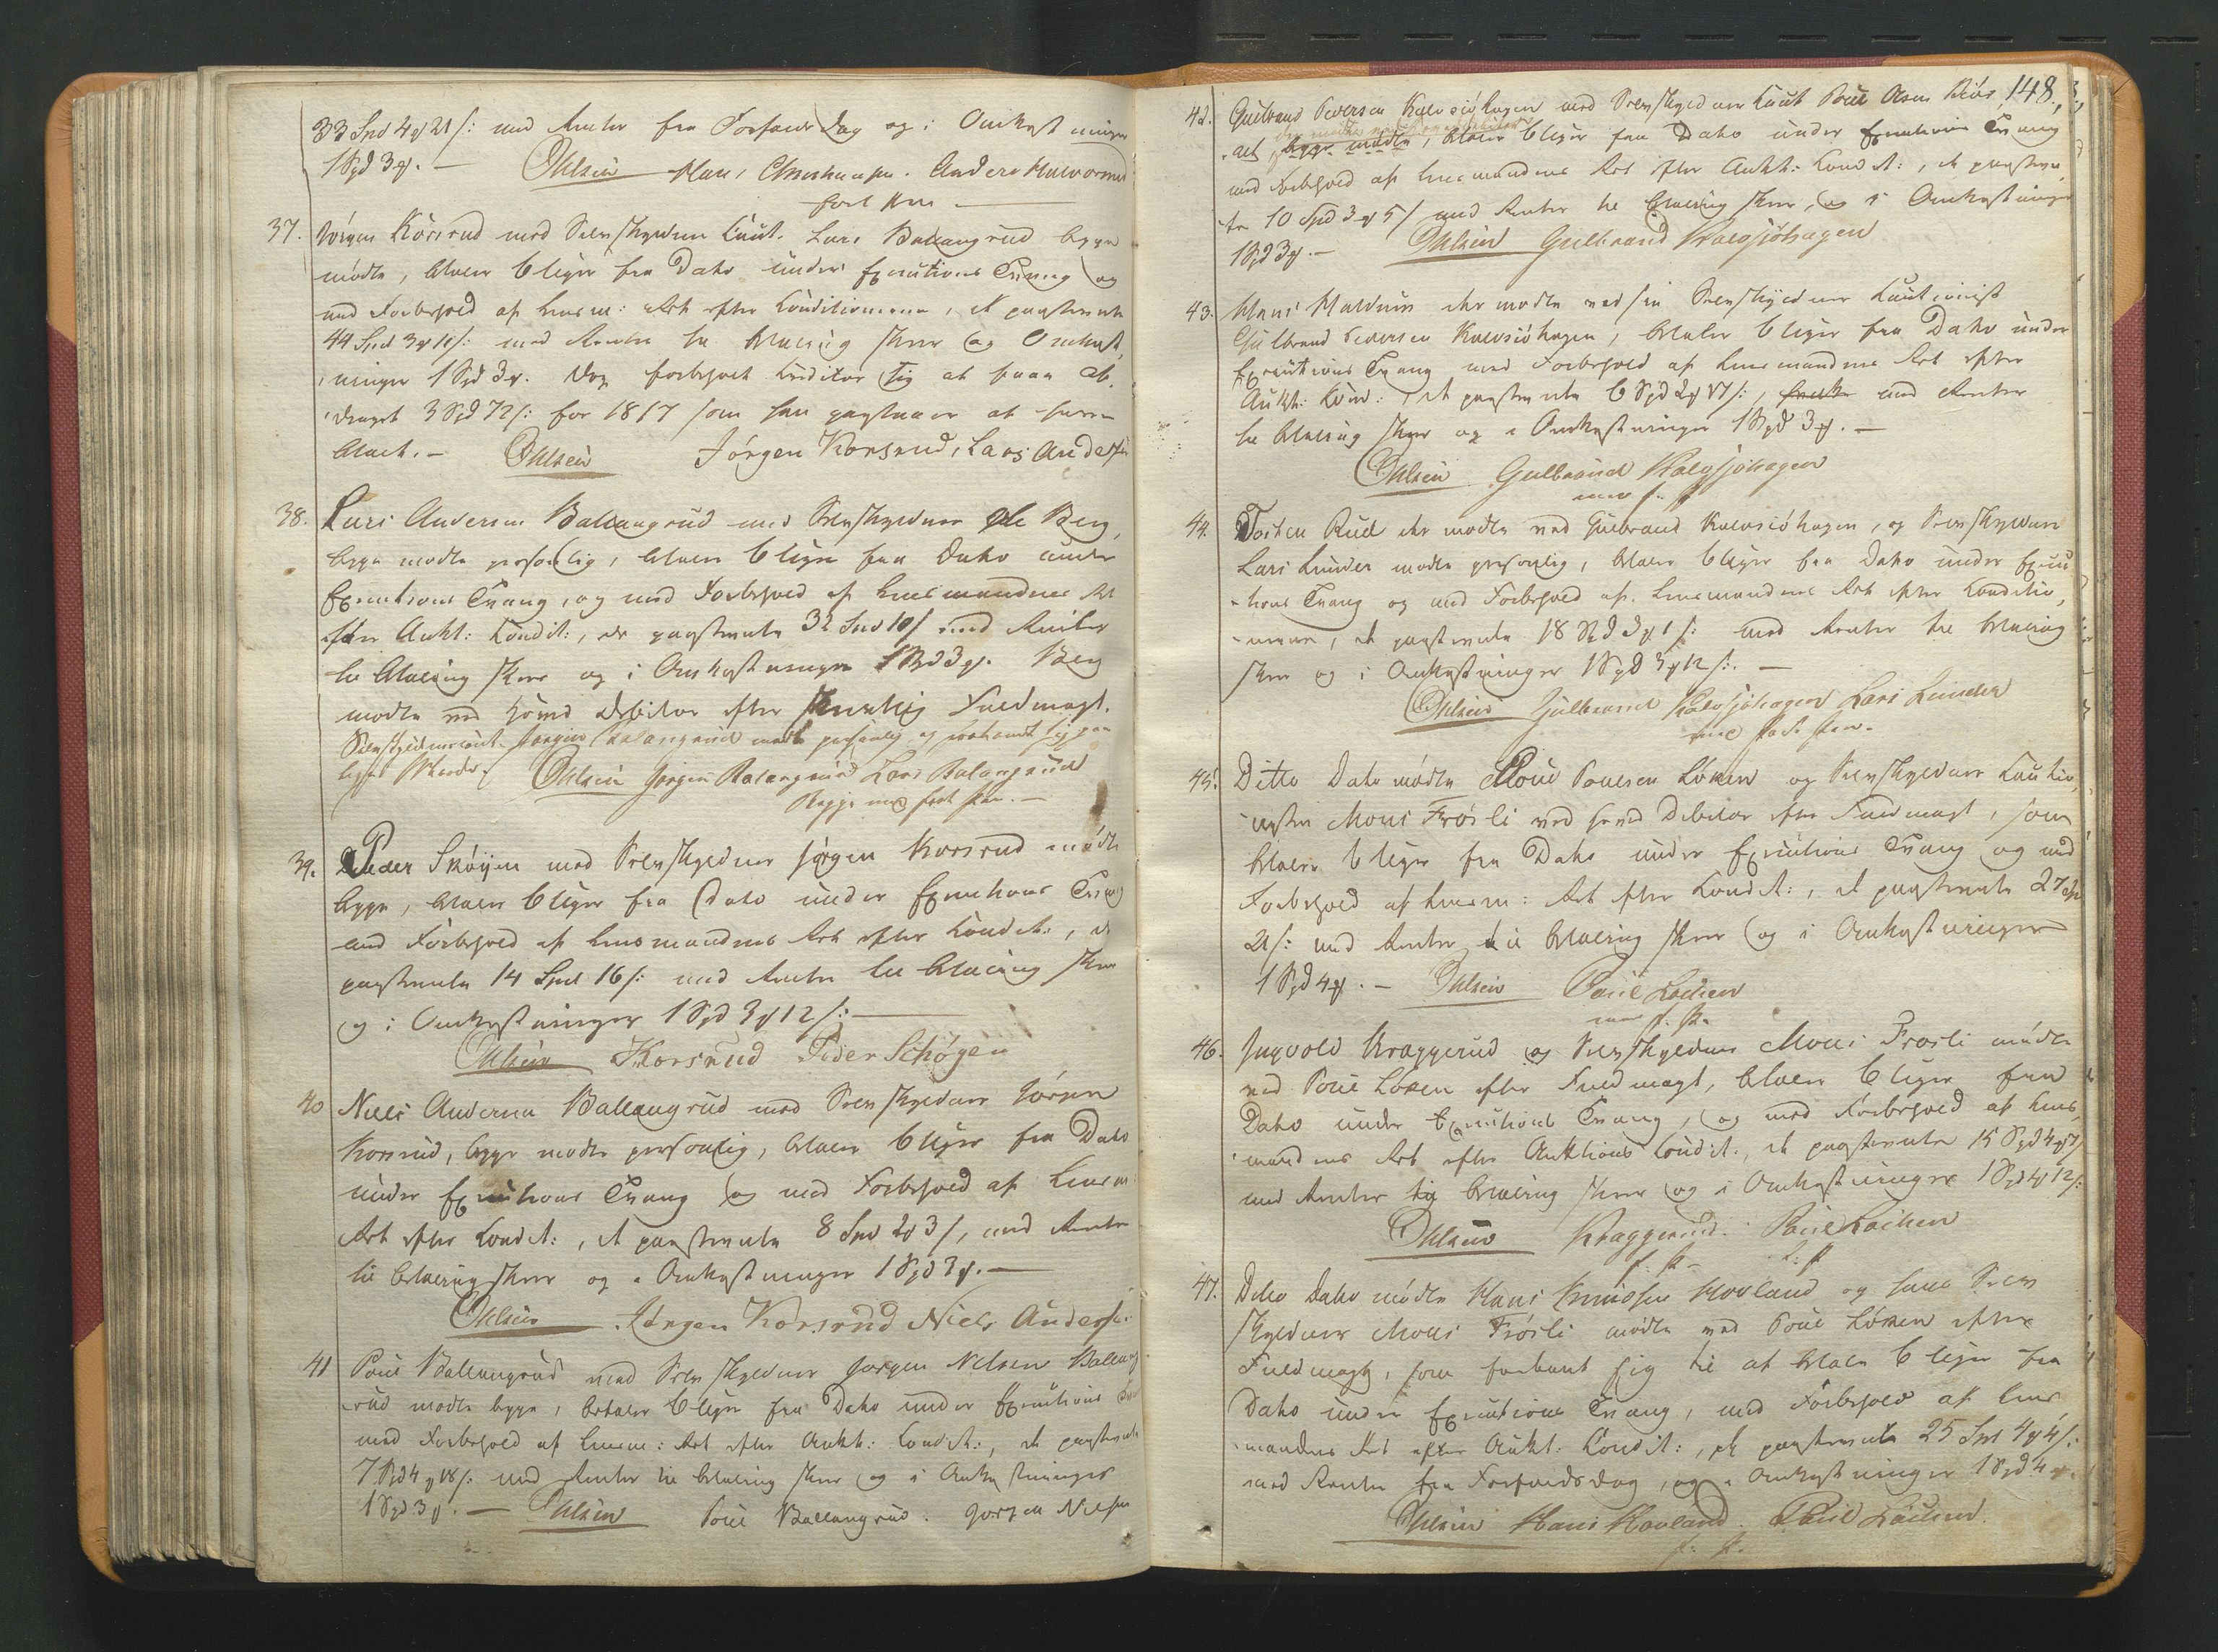 33 Spd 4 # 21 s: med Renter fra Forfaldsdag og i Omkostninger
1 Spd 3 #. — Ohlsen Hans Christiansen. Anders Halvorsen
ført Pen —
37. Jörgen Korsrud med Selvskyldner Caut. Lars Ballangrud begge
mödte, betaler 6 Uger fra Dato under Executions Tvang og
med Forbehold af Lensm: Ret efter Conditionerne, de paastevnte
44 Spd 3 # med Renter til Betaling skeer og Omkost
ninger 1 Spd 3 #. Dog forbeholdt Debitor sig at faae af
draget 3 Spd 72 s: for 1817 som han paastaaer at have
betalt. — Ohlsen Jörgen Korsrud, Lars Andersen
38. Lars Andersen Ballangrud med Selvskyldner Ole Berg,
begge mødte personlig, betaler 6 Uger fra Dato under
Executions Tvang, og med Forbehold af Lensmandens Ret
efter Aukt: Condit:, de paastevnte 32 Spd 10 s med Renter
til Betaling skeer og i Omkostninger 1 Spd 3 #. Berg
mødte ved Debitor efter skriftlig Fuldmagt.
Selvskyldnercaut. Jörgen Balangrud mødte personlig og forbandt sig paa
Ohlsen Jörgen Balangrud Lars Balangrud
Begge med ført Pen. —
39. Peder Skøyen med Selvskyldner Jørgen Korsrud mödte
begge, betaler 6 Uger fra Dato under Executions Tvang
med Forbehold af Lensmandens Ret efter Condit:, de
paastevnte 14 Spd 16 s: med Renter til Betaling skeer
og i Omkostninger 1 Spd 3 # 12 s: —
Ohlsen Korsrud Peder Schøyen
40 Niels Andersen Ballangrud med Selvskyldner Jörgen
Korsrud, begge mødte personlig, betaler 6 Uger fra Dato
under Executions Tvang og med Forbehold af Lensm:
Ret efter Condit:, de paastevnte 8 Spd 2 # 3 s, med Renter
til Betaling skeer og i Omkostninger 1 Spd 3 #. —
Ohlsen Jörgen Korsrud Niels Andersen
41 Poul Ballangrud med Selvskyldner Jørgen Nilsen Ballang
rud mødte begge, betaler 6 Uger fra Dato under Executions
med Forbehold af Lensm: Ret efter Aukt: Condit:, de paastevnte
7 Spd 4 # 18 s: med Renter til Betaling skeer og i Omkostninger
1 Spd 3 #. — Ohlsen Poul Ballangrud. Jørgen Nilsen
148.
42. Gulbrand Iversen Kalvsjöhagen med Selvskyldner Caut Poul
begge mødte, betaler 6 Uger fra Dato under Executions Tvang
med Forbehold af Lensmandens Ret efter Aukt: Condit:, de paastevn
te 10 Spd 3 # 5 s med Renter til Betaling skeer, og i Omkostninger
1 Spd 3 #. — Ohlsen Gulbrand Kalvsjöhagen
43. Hans Haldum der mødte ved sin Selvskyldner Cautionist
Gulbrand Iversen Kalvsjöhagen, betaler 6 Uger fra Dato under
Executions Tvang med Forbehold af Lensmandens Ret efter
Aukt: Cond:, de paastevnte 6 Spd 2 # 17 s:, med Renter
til Betaling skeer og i Omkostninger 1 Spd 3 #. —
Ohlsen Gulbrand Kalvsjöhagen
med f. P
44. Torsten Rud der mødte ved Gulbrand Kalvsjöhagen, og Selvskyldner
Lars Lunder mødte personlig, betaler 6 Uger fra Dato under Execu
tions Tvang og med Forbehold af Lensmandens Ret efter Conditio
nerne, de paastevnte 18 Spd 3 # 1 s: med Renter til Betaling
skeer og i Omkostninger 1 Spd 3 # 12 s:. —
Ohlsen Gulbrand Kalvsjöhagen Lars Lunder
45. Ditto Dato mødte Poul Poulsen Löken og Selvskyldner Cautio
nisten Mons Frösli ved Debitor efter Fuldmagt, som
betaler 6 Uger fra Dato under Executions Tvang og med
Forbehold af Lensm: Ret efter Condit:, de paastevnte 27 Spd
21 s: med Renter til Betaling skeer og i Omkostninger
1 Spd 4 #. — Ohlsen Poul Löchen
med f. P.
46. Ingvold Kraggerud og Selvskyldner Mons Frøsli mødte
ved Poul Löken efter Fuldmagt, betaler 6 Uger fra
Dato under Executions Tvang, og med Forbehold af Lens
mandens Ret efter Auktions Condit., de paastevnte 15 Spd 4 # 7 s
med Renter til Betaling skeer og i Omkostninger 1 Spd 4 # 12 s:
Ohlsen Kraggerud. Poul Løchen
f: P. f: P
47. Ditto Dato mødte Hans Knudsen Hovland og hans Selv
skyldner Mons Frösli mødte ved Poul Löken efter
Fuldmagt, som forbandt sig til at betale 6 Uger fra
Dato under Executions Tvang, med Forbehold af Lens
mandens Ret efter Aukt: Condit:, de paastevnte 25 Spd 4 # 4 s:
med Renter fra Forfaldsdag, og i Omkostninger 1 Spd 4 #.
Ohlsen Hans Hovland. Poul Löchen.
f: P.